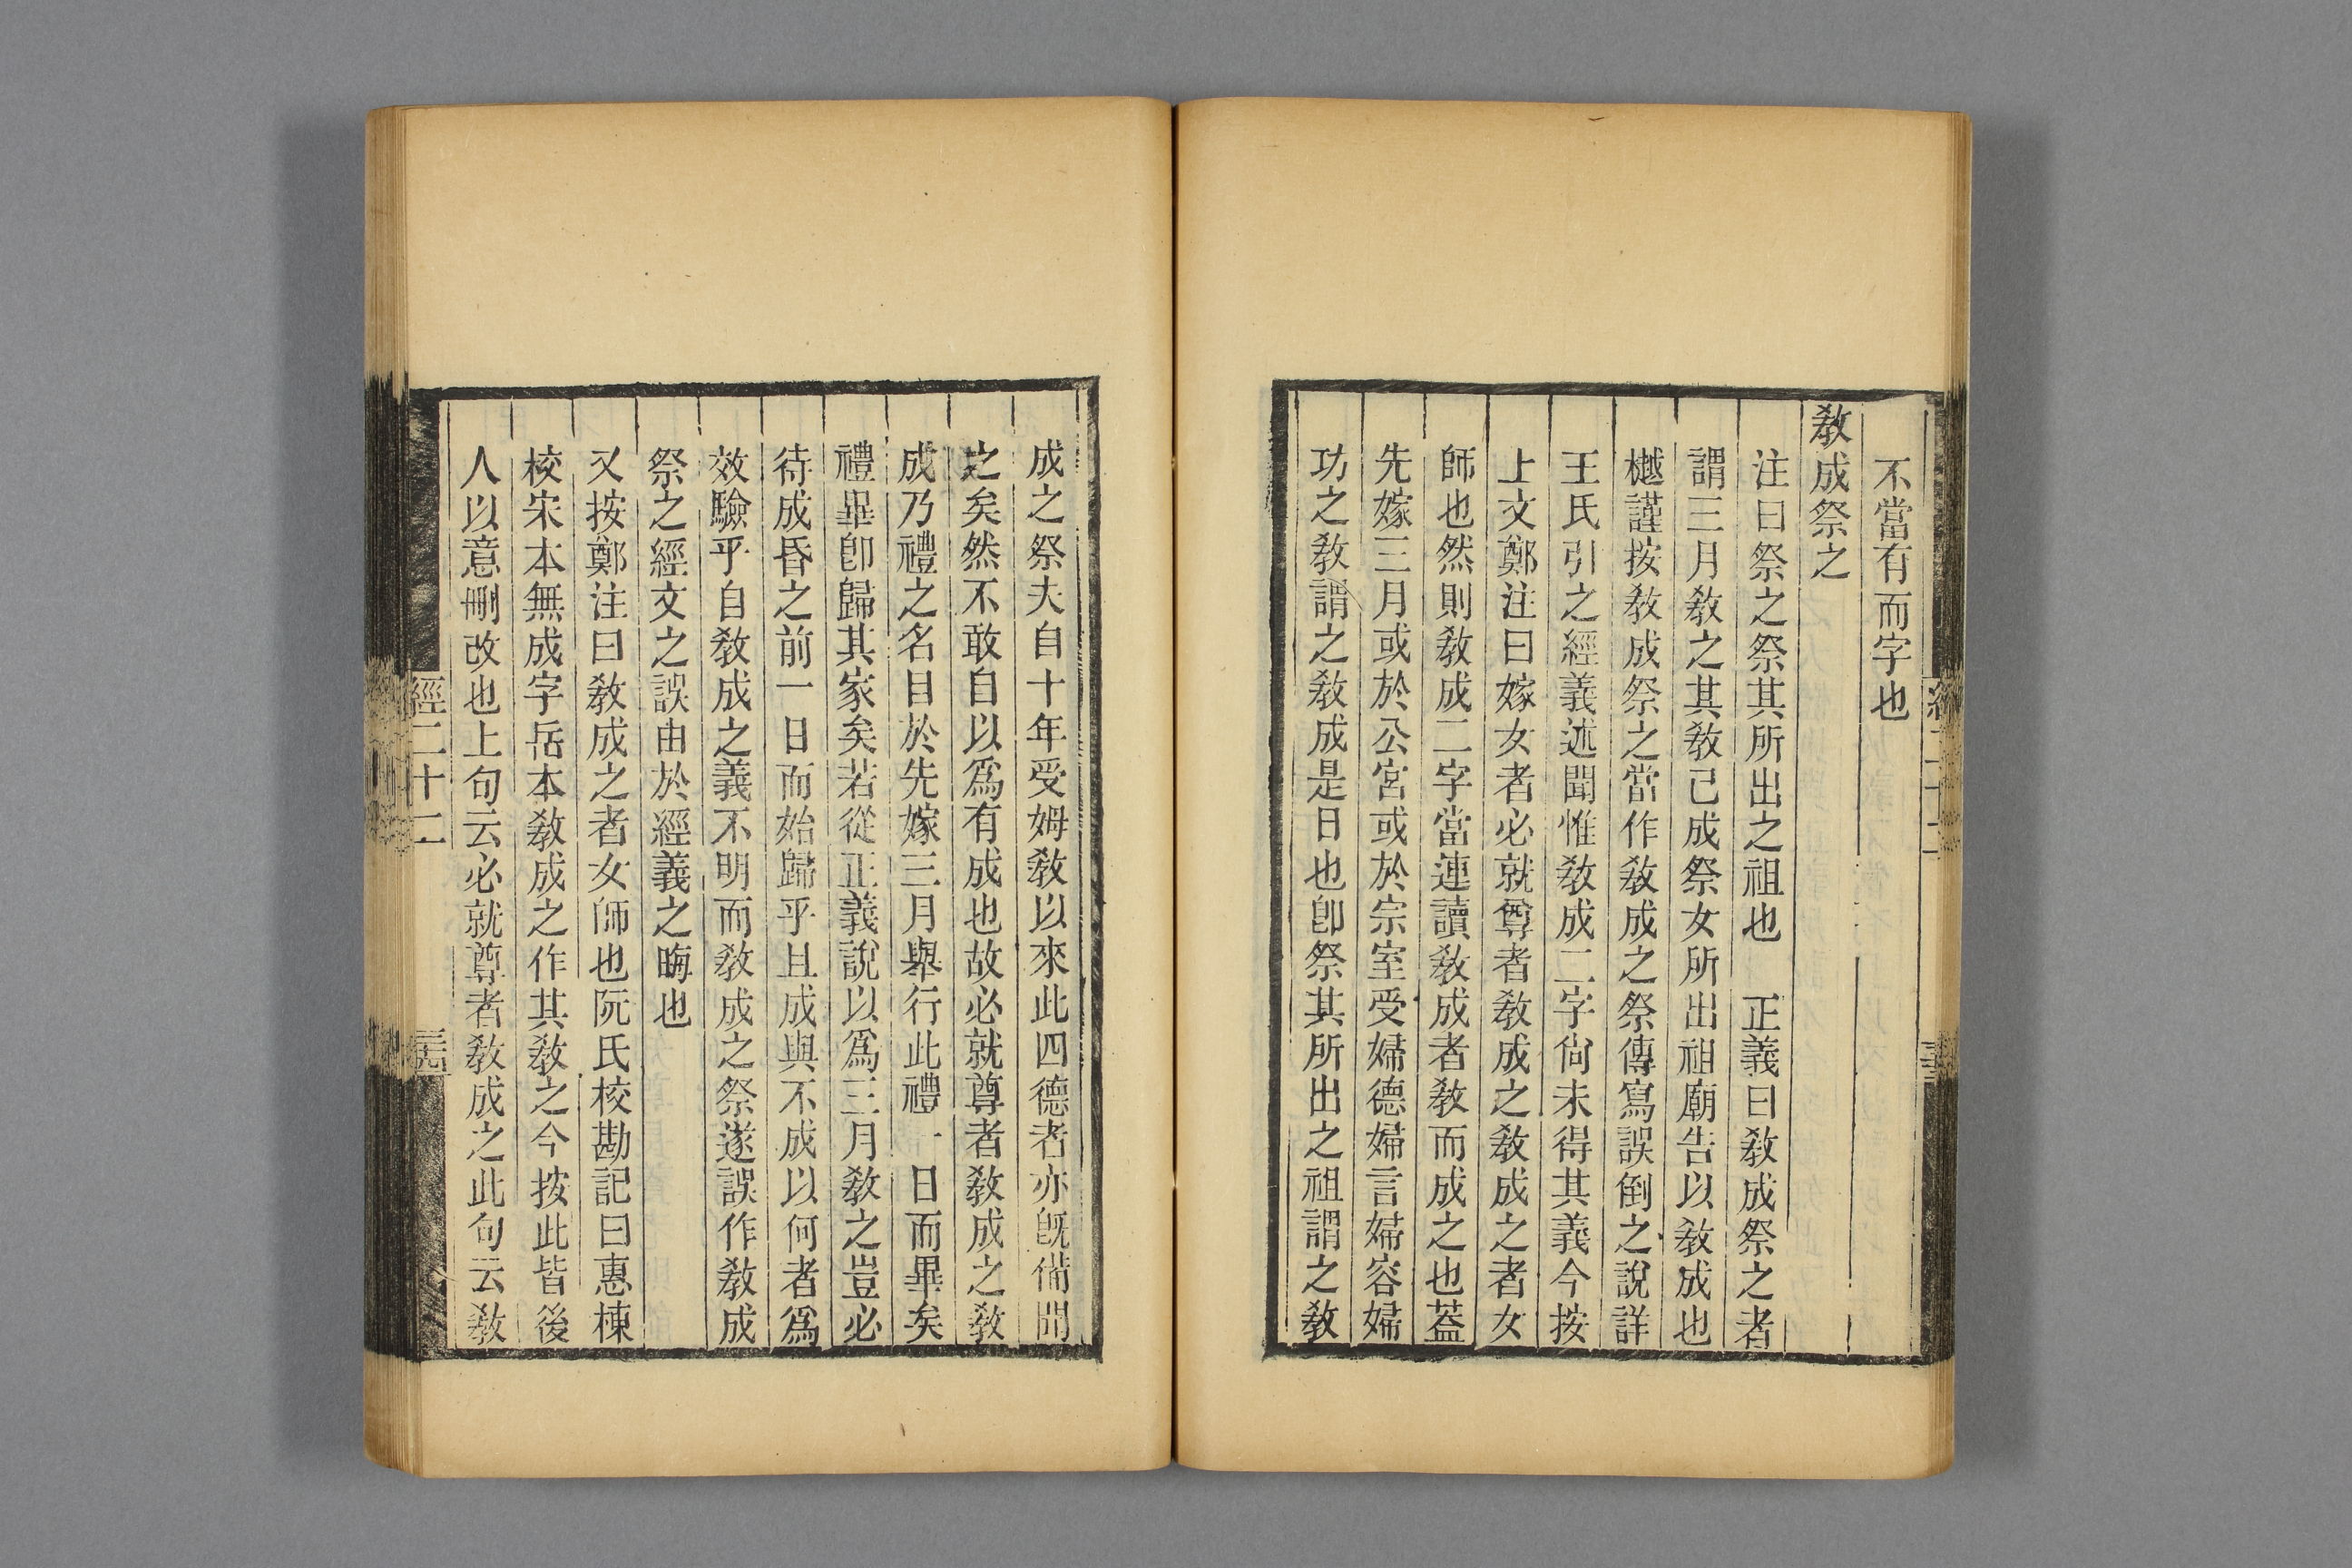 不當有而字也
敎成祭之
注曰祭之祭其所出之祖也　正義曰敎成祭之者
謂三月敎之其敎已成祭女所出祖廟告以敎成也
樾謹按敎成祭之當作敎成之祭傳寫誤倒之說詳
王氏引之經義述聞惟敎成二字尙未得其義今按
上文鄭注曰嫁女者必就尊者敎成之敎成之者女
師也然則敎成二字當連讀敎成者敎而成之也蓋
先嫁三月或於公宮或於宗室受婦德婦言婦容婦
功之敎謂之敎成是日也卽祭其所出之祖謂之敎
成之祭夫自十年受姆敎以來此四德者亦旣備聞
之矣然不敢自以爲有成也故必就尊者敎成之敎
成乃禮之名目於先嫁三月舉行此禮一日而畢矣
禮畢卽歸其家矣若從正義說以爲三月敎之豈必
待成昏之前一日而始歸乎且成與不成以何者爲
效驗乎自敎成之義不明而敎成之祭遂誤作敎成
祭之經文之誤由於經義之晦也
又按鄭注曰敎成之者女師也阮氏校勘記曰惠棟
校宋本無成字岳本敎成之作其敎之今按此皆後
人以意刪改也上句云必就尊者敎成之此句云敎
經二十二